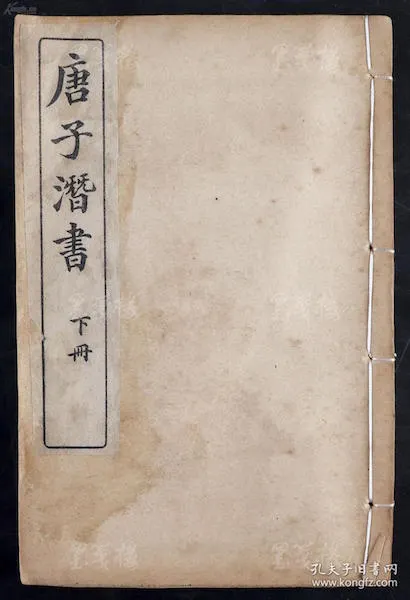 唐子潛書
下冊
孔夫子旧书网
www.kongfz.com